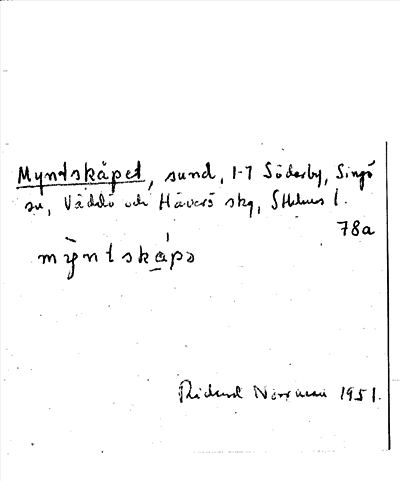 Myntskåpet, sund, 1-7 Söderby, Singö
sn, Väddö och Häverö skg, Sthlms l.
78a
mỳntská̱pə
Rickard Norrman 1951.